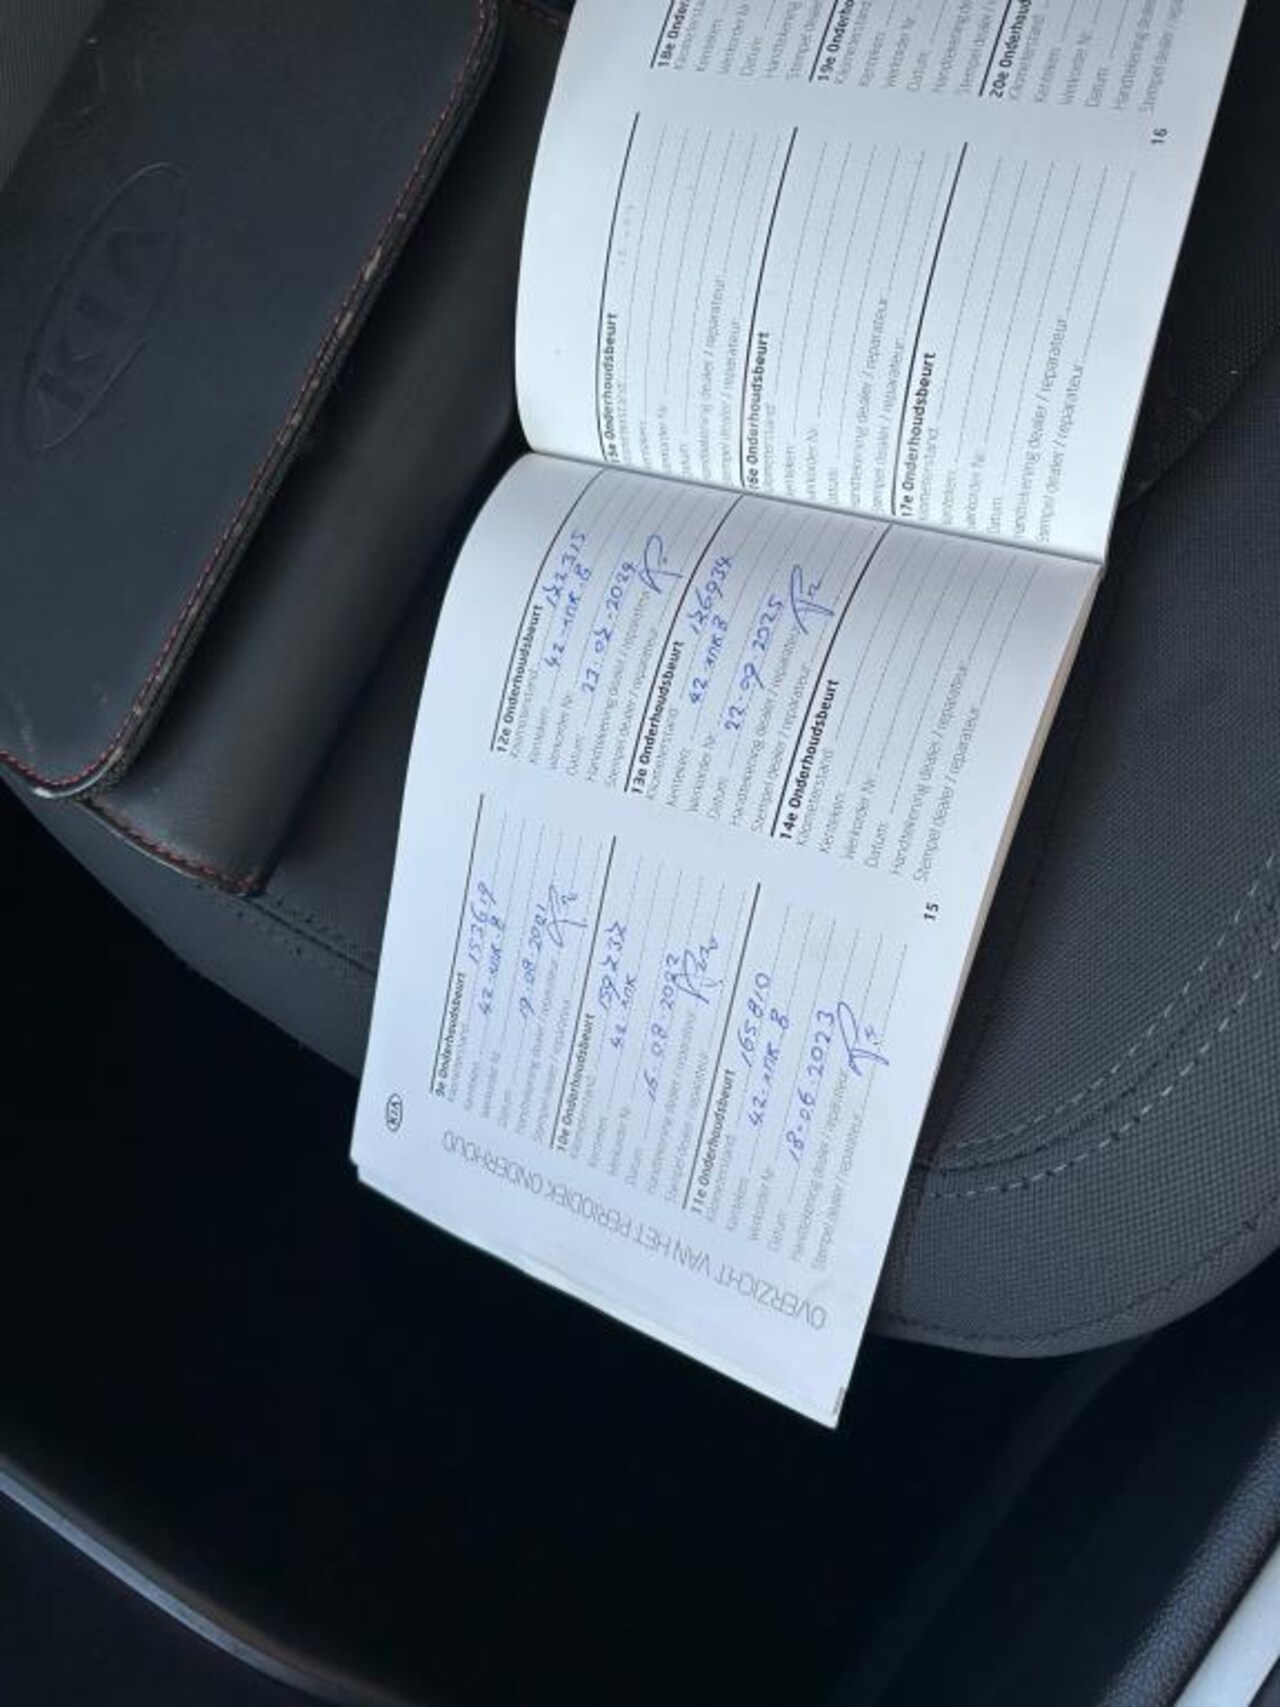 KIA
KIA
OVERZICHT VAN HET PERIODIEK ONDERHOUD
9e Onderhoudsbeurt
Kilometerstand: 153619
Kenteken:
Werkorder Nr.
Datum: 19.08.2021
Handtekening dealer / reparateur:
Stempel dealer / reparateur:
10e Onderhoudsbeurt
Kilometerstand:
Kenteken:
Werkorder Nr.
Datum: 16.08.2022
Handtekening dealer / reparateur:
Stempel dealer / reparateur:
11e Onderhoudsbeurt
Kilometerstand: 165810
Kenteken:
Werkorder Nr.
Datum: 18.06.2023
Handtekening dealer / reparateur:
Stempel dealer / reparateur:
12e Onderhoudsbeurt
Kilometerstand: 172315
Kenteken:
Werkorder Nr.
Datum: 23.07.2024
Handtekening dealer / reparateur:
Stempel dealer / reparateur:
13e Onderhoudsbeurt
Kilometerstand: 176934
Kenteken:
Werkorder Nr.
Datum: 22.09.2025
Handtekening dealer / reparateur:
Stempel dealer / reparateur:
14e Onderhoudsbeurt
Kilometerstand:
Kenteken:
Werkorder Nr.
Datum:
Handtekening dealer / reparateur:
Stempel dealer / reparateur:
15
15e Onderhoudsbeurt
dealer / reparateur:
dealer / reparateur:
16e Onderhoudsbeurt
dealer / reparateur:
dealer / reparateur:
17e Onderhoudsbeurt
Kilometerstand:
Kenteken:
Werkorder Nr.
Datum:
Handtekening dealer / reparateur:
Stempel dealer / reparateur:
18e Onder
Kilometerstand
Kenteken:
Werkorder Nr.
Datum:
Handtekening
Stempel deale
19e Onderho
Kilometerstand
Kenteken:
Werkorder Nr.
Datum:
Handtekening de
Stempel dealer /
20e Onderhoud
Kilometerstand:
Kenteken:
Werkorder Nr.
Datum:
Handtekening dealer
Stempel dealer / repa
16